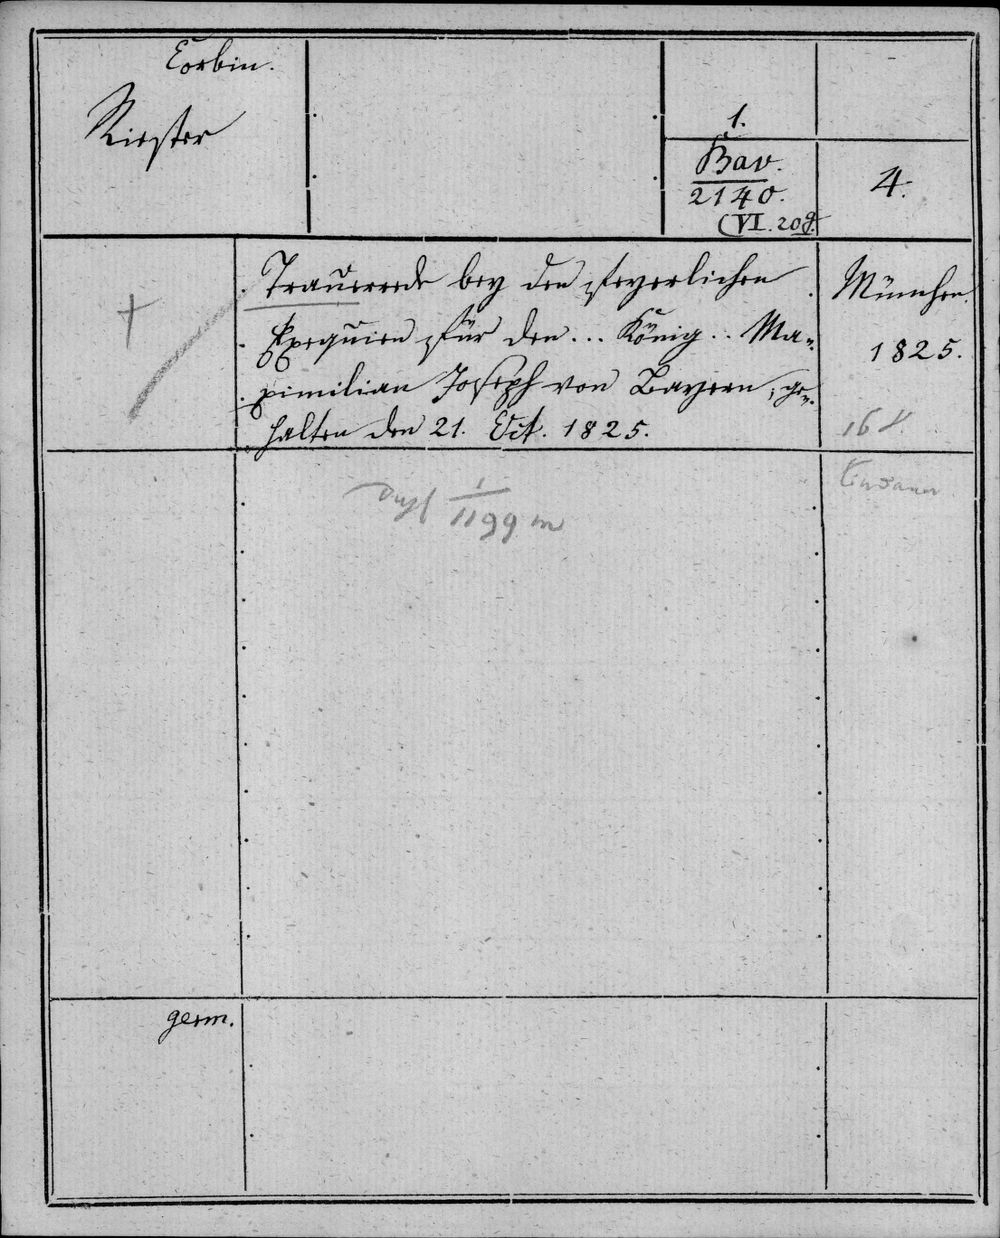 Corbin.
Riester
1.
Bav.
2140.
(VI. 20g.
4.
Trauerrede bey den feyerlichen
Exequien für den ... König .. Ma=
ximilian Joseph von Bayern, ge=
halten den 21. Oct. 1825.
München
1825.
16
1
1199 m
germ.